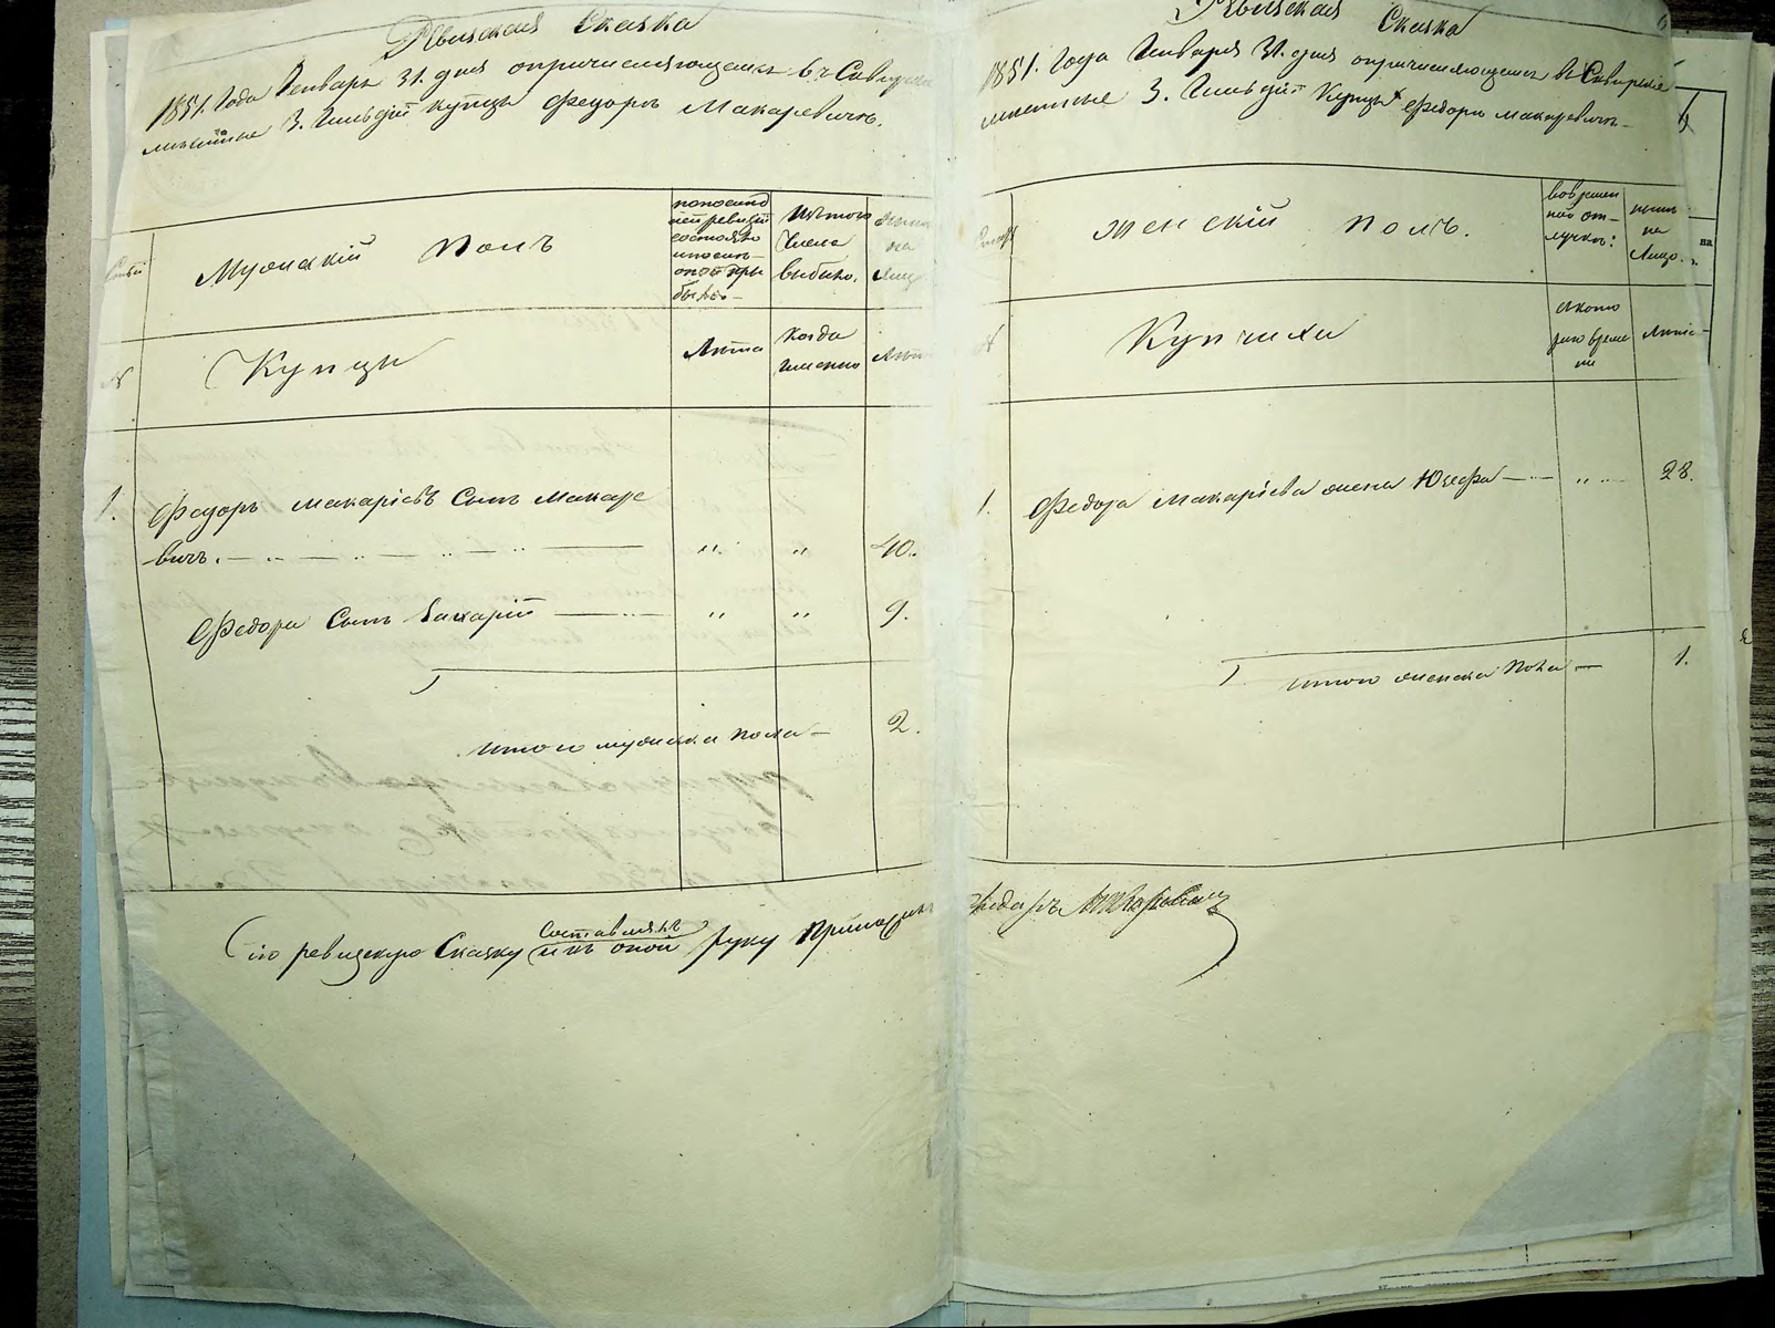 Ревизская Сказка
1851. Года Генваря 31. дня о причисляющемся въ Сквирское
мѣстное 3. Гильдіи купцѣ Федорѣ Макаревичѣ.
Мужескій полъ
по последней ревизіи состояло и после оной прибыло
Изъ того числа выбыло.
на лицо
№
Купцы
Лѣта
Когда именно
Лѣта
1. Федоръ Макаріевъ Сынъ Макаре
вичъ. „ „ 40.
Федора Сынъ Макарій „ „ 9.
Итого мужеска пола — 2.
Сію ревизскую Сказку составилъ и къ оной руку приложилъ
Ревизская Сказка
1851. Года Генваря 31. дня о причисляющемся въ Сквирское
мѣстное 3. Гильдіи Купцѣ Федорѣ Макаревичѣ
Женскій полъ.
во временной отлучкѣ:
на Лицо.
№
Купчихи
съ котораго времени
Лѣта
1. Федора Макаріева жена Юзефа — „ 28.
Итого женска Пола — 1.
Федоръ Макаревичъ